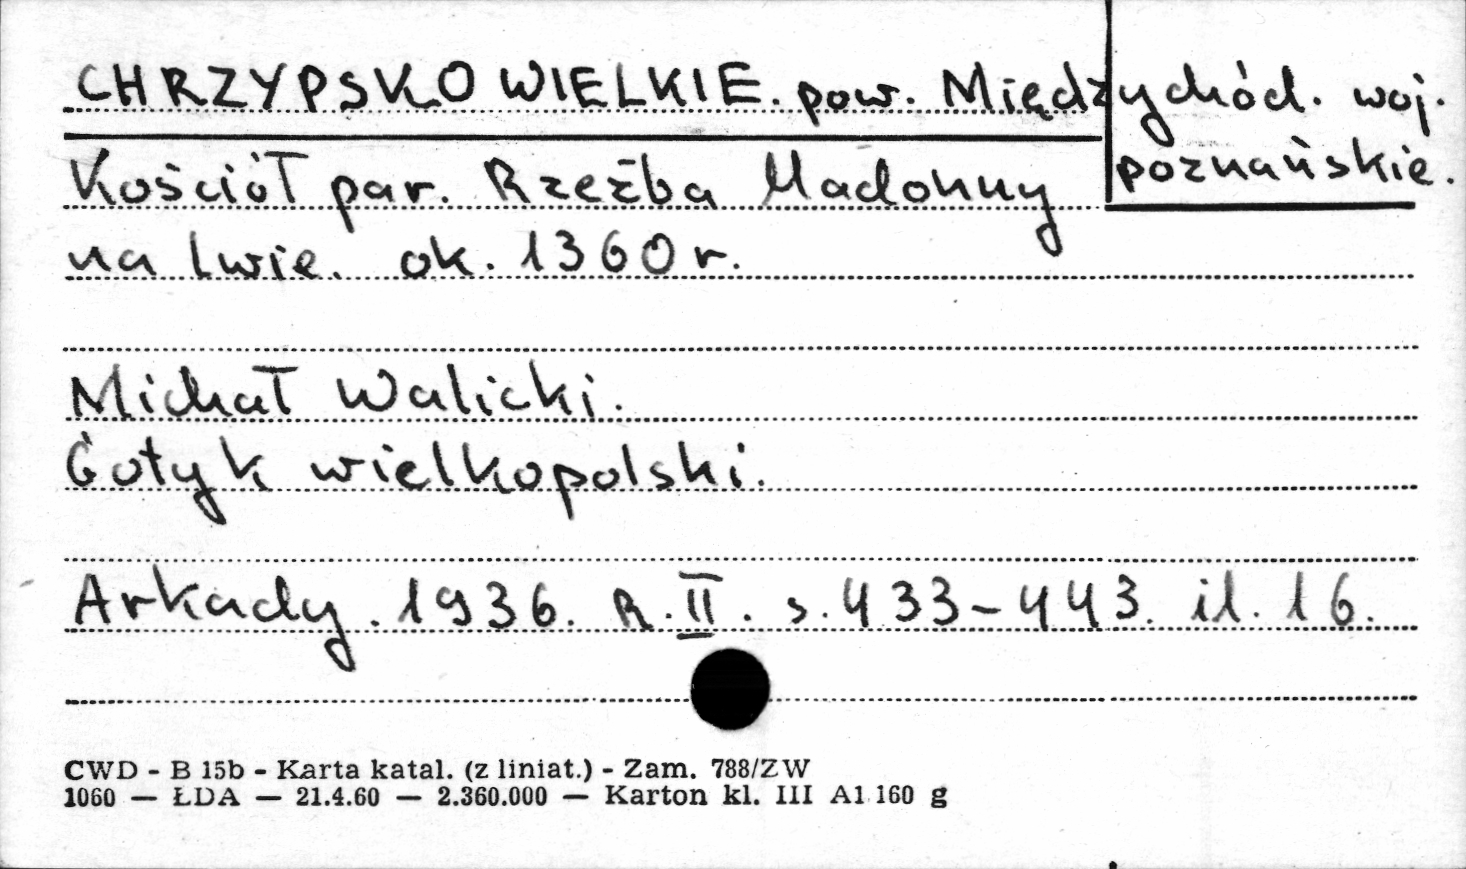 CHRZYPSKO WIELKIE. pow. Międzychód. woj.
poznańskie.
Kościół par. Rzeźba Madonny
na lwie. ok. 1360 r.
Michał Walicki.
Gotyk wielkopolski.
Arkady. 1936. R. II. s. 433-443. il. 16.
CWD - B 15b - Karta katal. (z liniat.) - Zam. 788/ZW
1060 — ŁDA — 21.4.60 — 2.360.000 — Karton kl. III A1 160 g